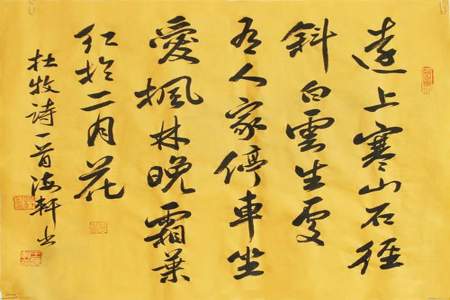 遠上寒山石徑
斜白雲生處
有人家停車坐
愛楓林晚霜葉
红於二月花
杜牧诗一首海軒书